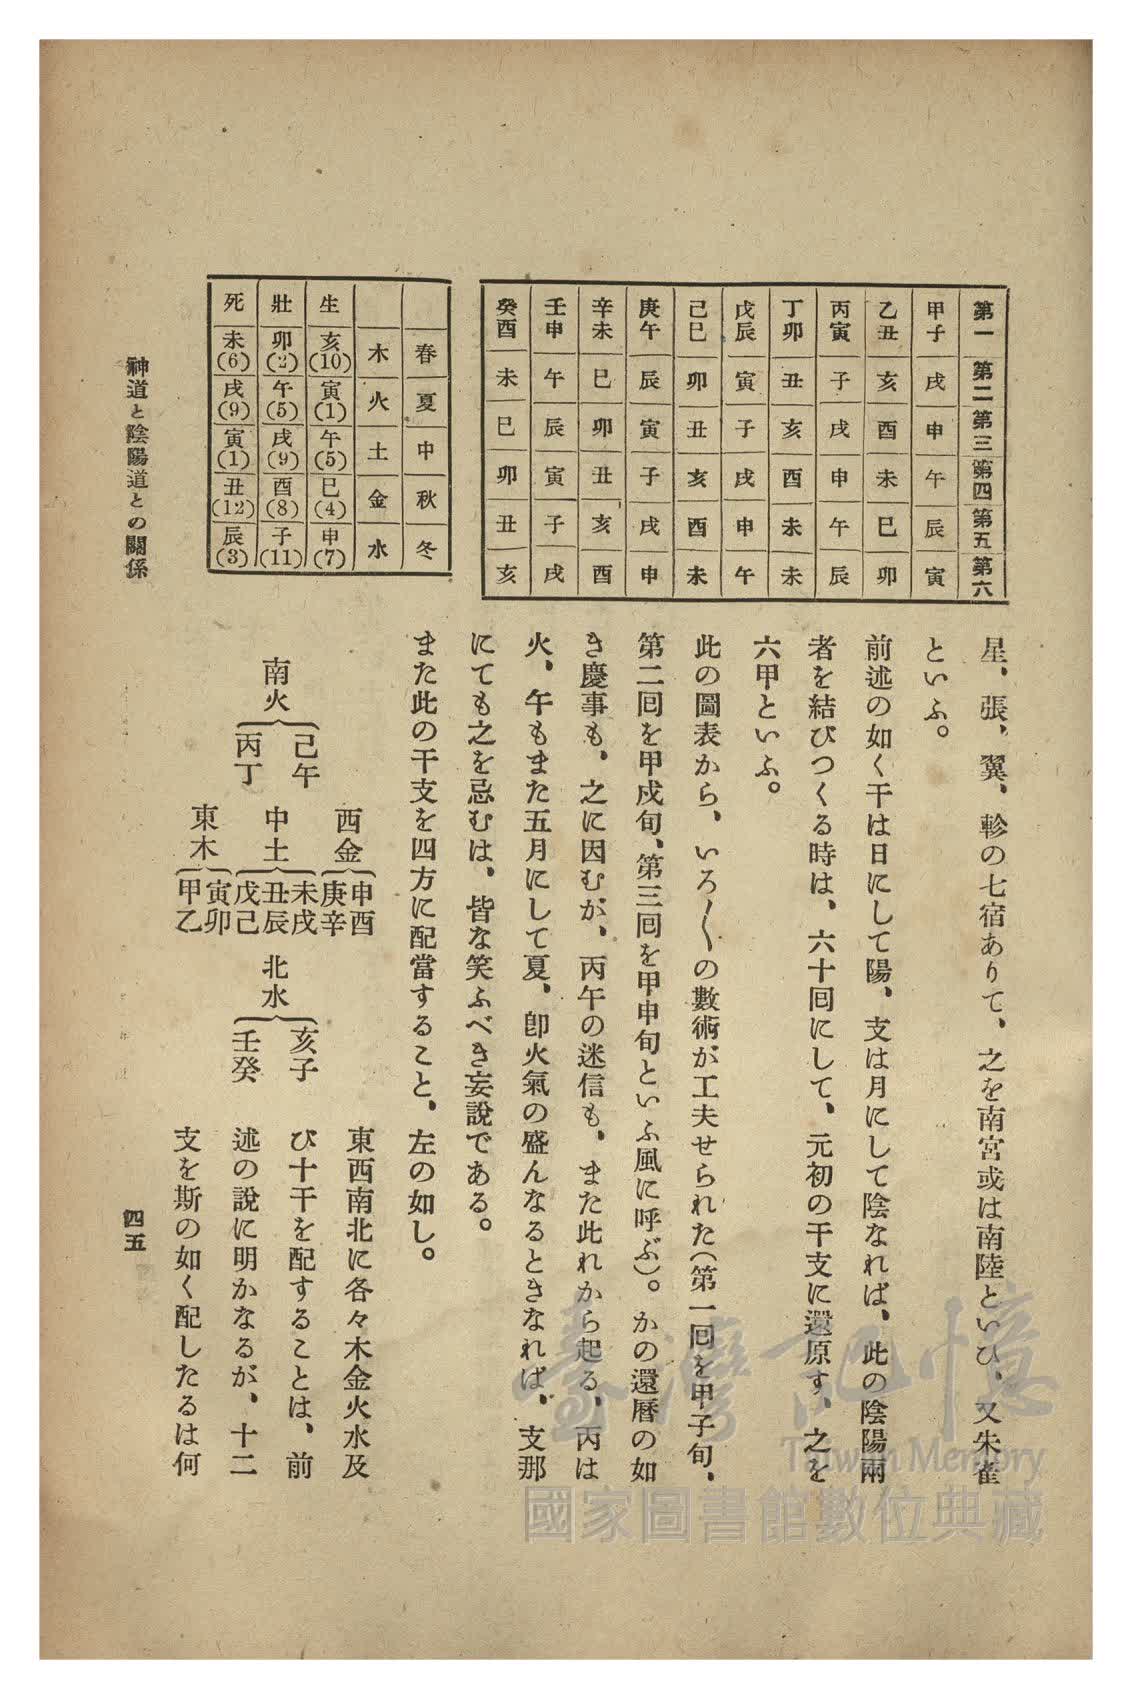 第一 第二 第三 第四 第五 第六
甲子 戌 申 午 辰 寅
乙丑 亥 酉 未 巳 卯
丙寅 子 戌 申 午 辰
丁卯 丑 亥 酉 未 未
戊辰 寅 子 戌 申 午
己巳 卯 丑 亥 酉 未
庚午 辰 寅 子 戌 申
辛未 巳 卯 丑 亥 酉
壬申 午 辰 寅 子 戌
癸酉 未 巳 卯 丑 亥
春 夏 中 秋 冬
木 火 土 金 水
生 亥(10) 寅(1) 午(5) 巳(4) 申(7)
壯 卯(2) 午(5) 戌(9) 酉(8) 子(11)
死 未(6) 戌(9) 寅(1) 丑(12) 辰(3)
星、張、翼、軫の七宿ありて、之を南宮或は南陸といひ、又朱雀
といふ。
前述の如く干は日にして陽、支は月にして陰なれば、此の陰陽兩
者を結びつくる時は、六十回にして、元初の干支に還原す、之を
六甲といふ。
此の圖表から、いろ〱の數術が工夫せられた(第一回を甲子旬、
第二回を甲戌旬、第三回を甲申旬といふ風に呼ぶ)。かの還曆の如
き慶事も、之に因むが、丙午の迷信も、また此れから起る、丙は
火、午もまた五月にして夏、卽火氣の盛んなるときなれば、支那
にても之を忌むは、皆な笑ふべき妄說である。
また此の干支を四方に配當すること、左の如し。
南火 己午 丙丁
西金 申酉 庚辛
中土 未戌 丑辰 戊己
東木 寅卯 甲乙
北水 亥子 壬癸
東西南北に各々木金火水及
び十干を配することは、前
述の說に明かなるが、十二
支を斯の如く配したるは何
神道と陰陽道との關係
四五
臺灣記憶
Taiwan Memory
國家圖書館數位典藏